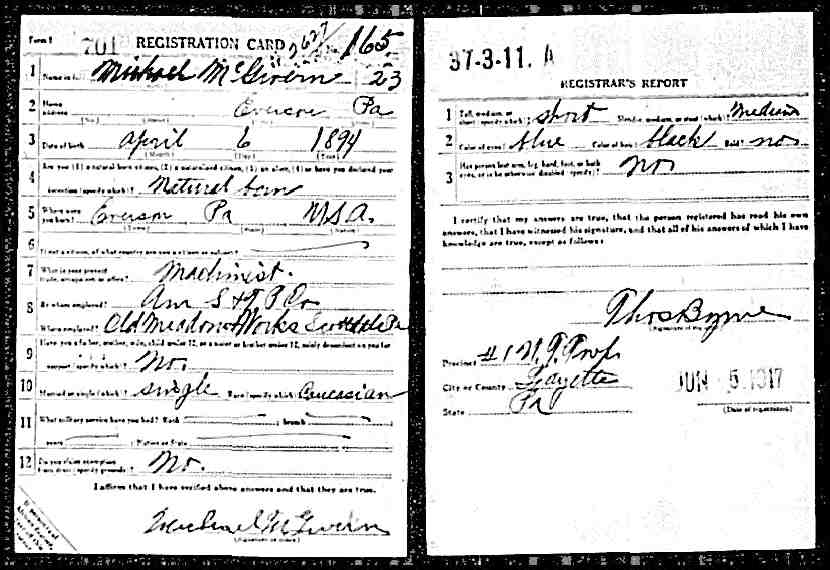 Form 1 701 REGISTRATION CARD 2627 No. 165
1 Name in full Michael McGivern 23
2 Home address Everson Pa
(No.) (Street) (City) (State)
3 Date of birth April 6 1894
(Month) (Day) (Year)
4 Are you (1) a natural born citizen, (2) a naturalized citizen, (3) an alien, (4) or have you declared your
intention (specify which)? Natural born
5 Where were you born? Everson Pa U.S.A.
(Town) (State) (Nation)
6 If not a citizen, of what country are you a citizen or subject?
7 What is your present trade, occupation, or office? Machinist.
8 By whom employed? Am S & T P Co
Where employed? Old Meadow Works Scottdale Pa
9 Have you a father, mother, wife, child under 12, or a sister or brother under 12, solely dependent on you for
support (specify which)? No.
10 Married or single (which)? single Race (specify which)? Caucasian
11 What military service have you had? Rank branch
years Nation or State
12 Do you claim exemption from draft (specify grounds)? No.
I affirm that I have verified above answers and that they are true.
Michael McGivern
37-3-11. A
REGISTRAR'S REPORT
1 Tall, medium, or short (specify which)? short Slender, medium, or stout (which)? Medium
2 Color of eyes? blue Color of hair? black Bald? no
3 Has person lost arm, leg, hand, foot, or both
eyes, or is he otherwise disabled (specify)? no
I certify that my answers are true, that the person registered has read his own
answers, that I have witnessed his signature, and that all of his answers of which I have
knowledge are true, except as follows:
Thos Byrne
(Signature of registrar)
Precinct #1 U. T. Twp.
City or County Fayette
State Pa
JUN 5 1917
(Date of registration)